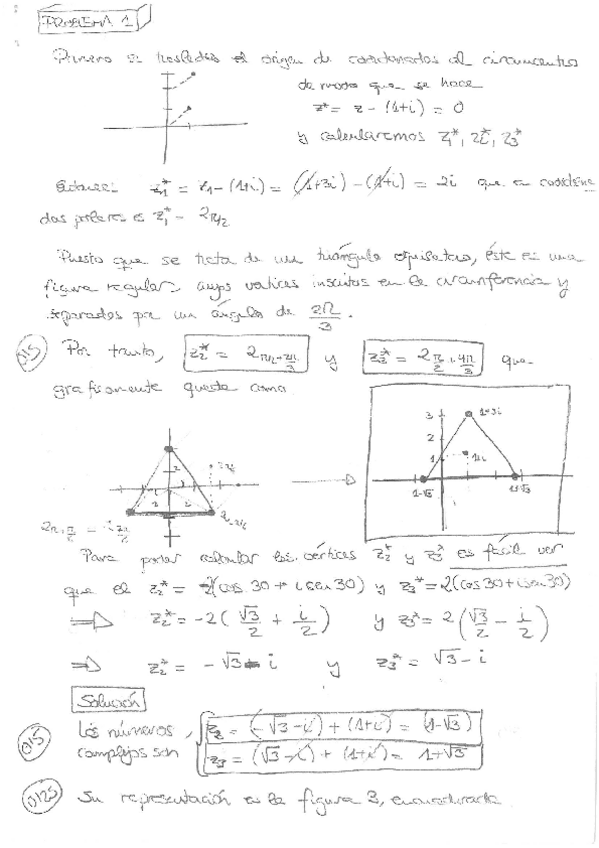 PROBLEMA 1
Primero se traslada el origen de coordenadas al circuncentro
de modo que se hace
z* = z - (1+i) = 0
y calcularemos z₁*, z₂*, z₃*
z₁* = z₁ - (1+i) = (1+3i) - (1+i) = 2i que en coordena
das polares es z₁* = 2π/2
Puesto que se trata de un triángulo equilátero, éste es una
figura regular, cuyos vértices inscritos en la circunferencia y
separados por un ángulo de 2π/3.
Por tanto, z₂* = 2π/2+2π/3 y z₃* = 2π/2+4π/3 que
gráficamente queda como
3
1+3i
2
1
1+i
1-√3
1+√3
Para poder calcular los vértices z₂* y z₃* es fácil ver
que el z₂* = -2(cos 30 + i sen 30) y z₃* = 2(cos 30 + i sen 30)
⇒ z₂* = -2(√3/2 + i/2) y z₃* = 2(√3/2 - i/2)
⇒ z₂* = -√3 - i y z₃* = √3 - i
Solución
Los números complejos son
z₂ = (-√3 - i) + (1+i) = (1-√3)
z₃ = (√3 - i) + (1+i) = 1+√3
0'25 Su representación es la figura 3, encuadrada